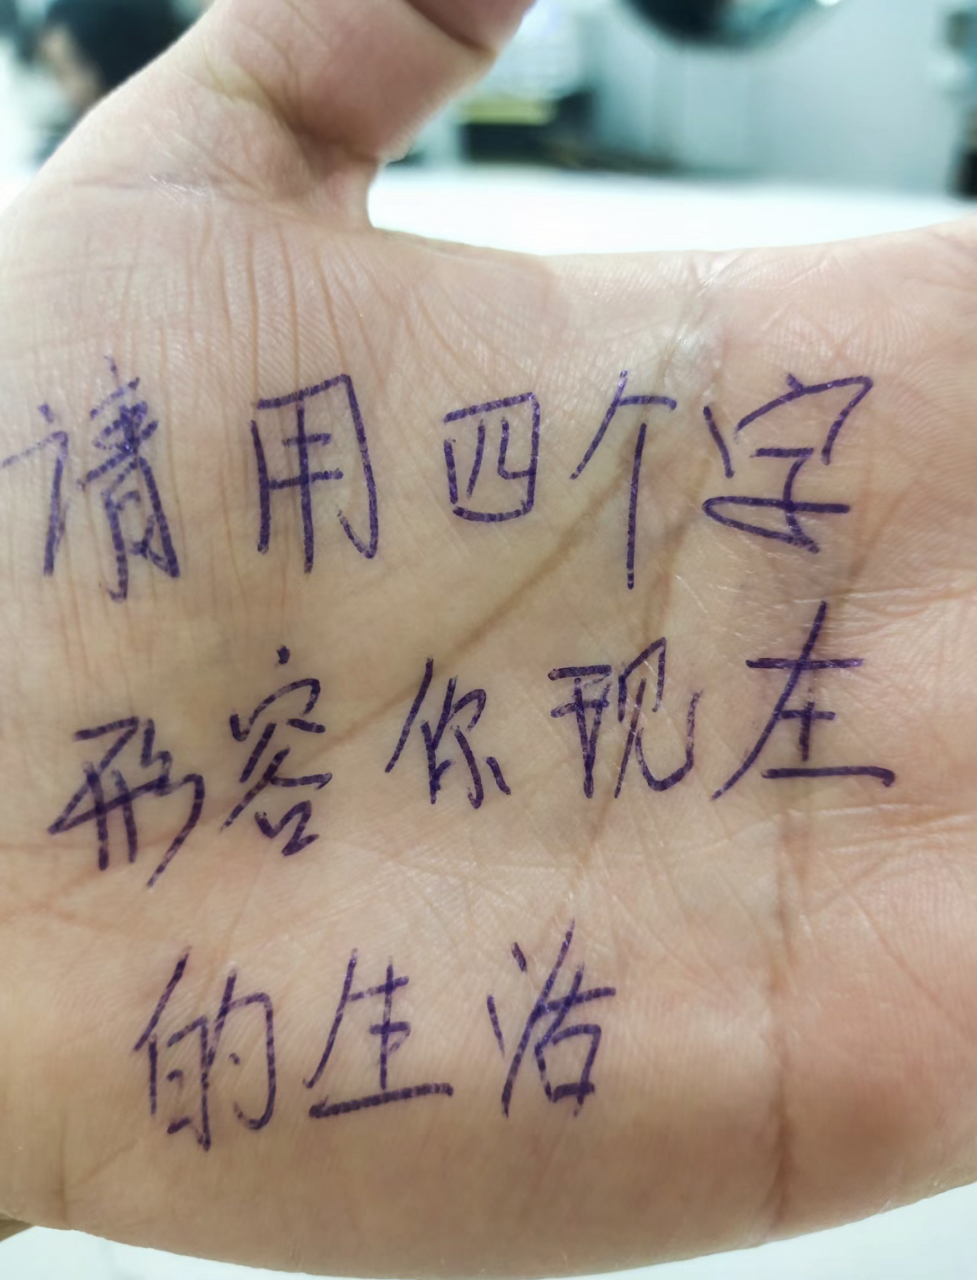 请用四个字
形容你现在
的生活